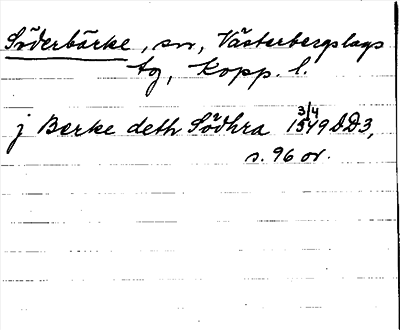 Söderbärke, sn, Västerbergslags
tg, Kopp. l.
j Berke deth Södhra 3/4 1549 DD3,
s. 96 or.